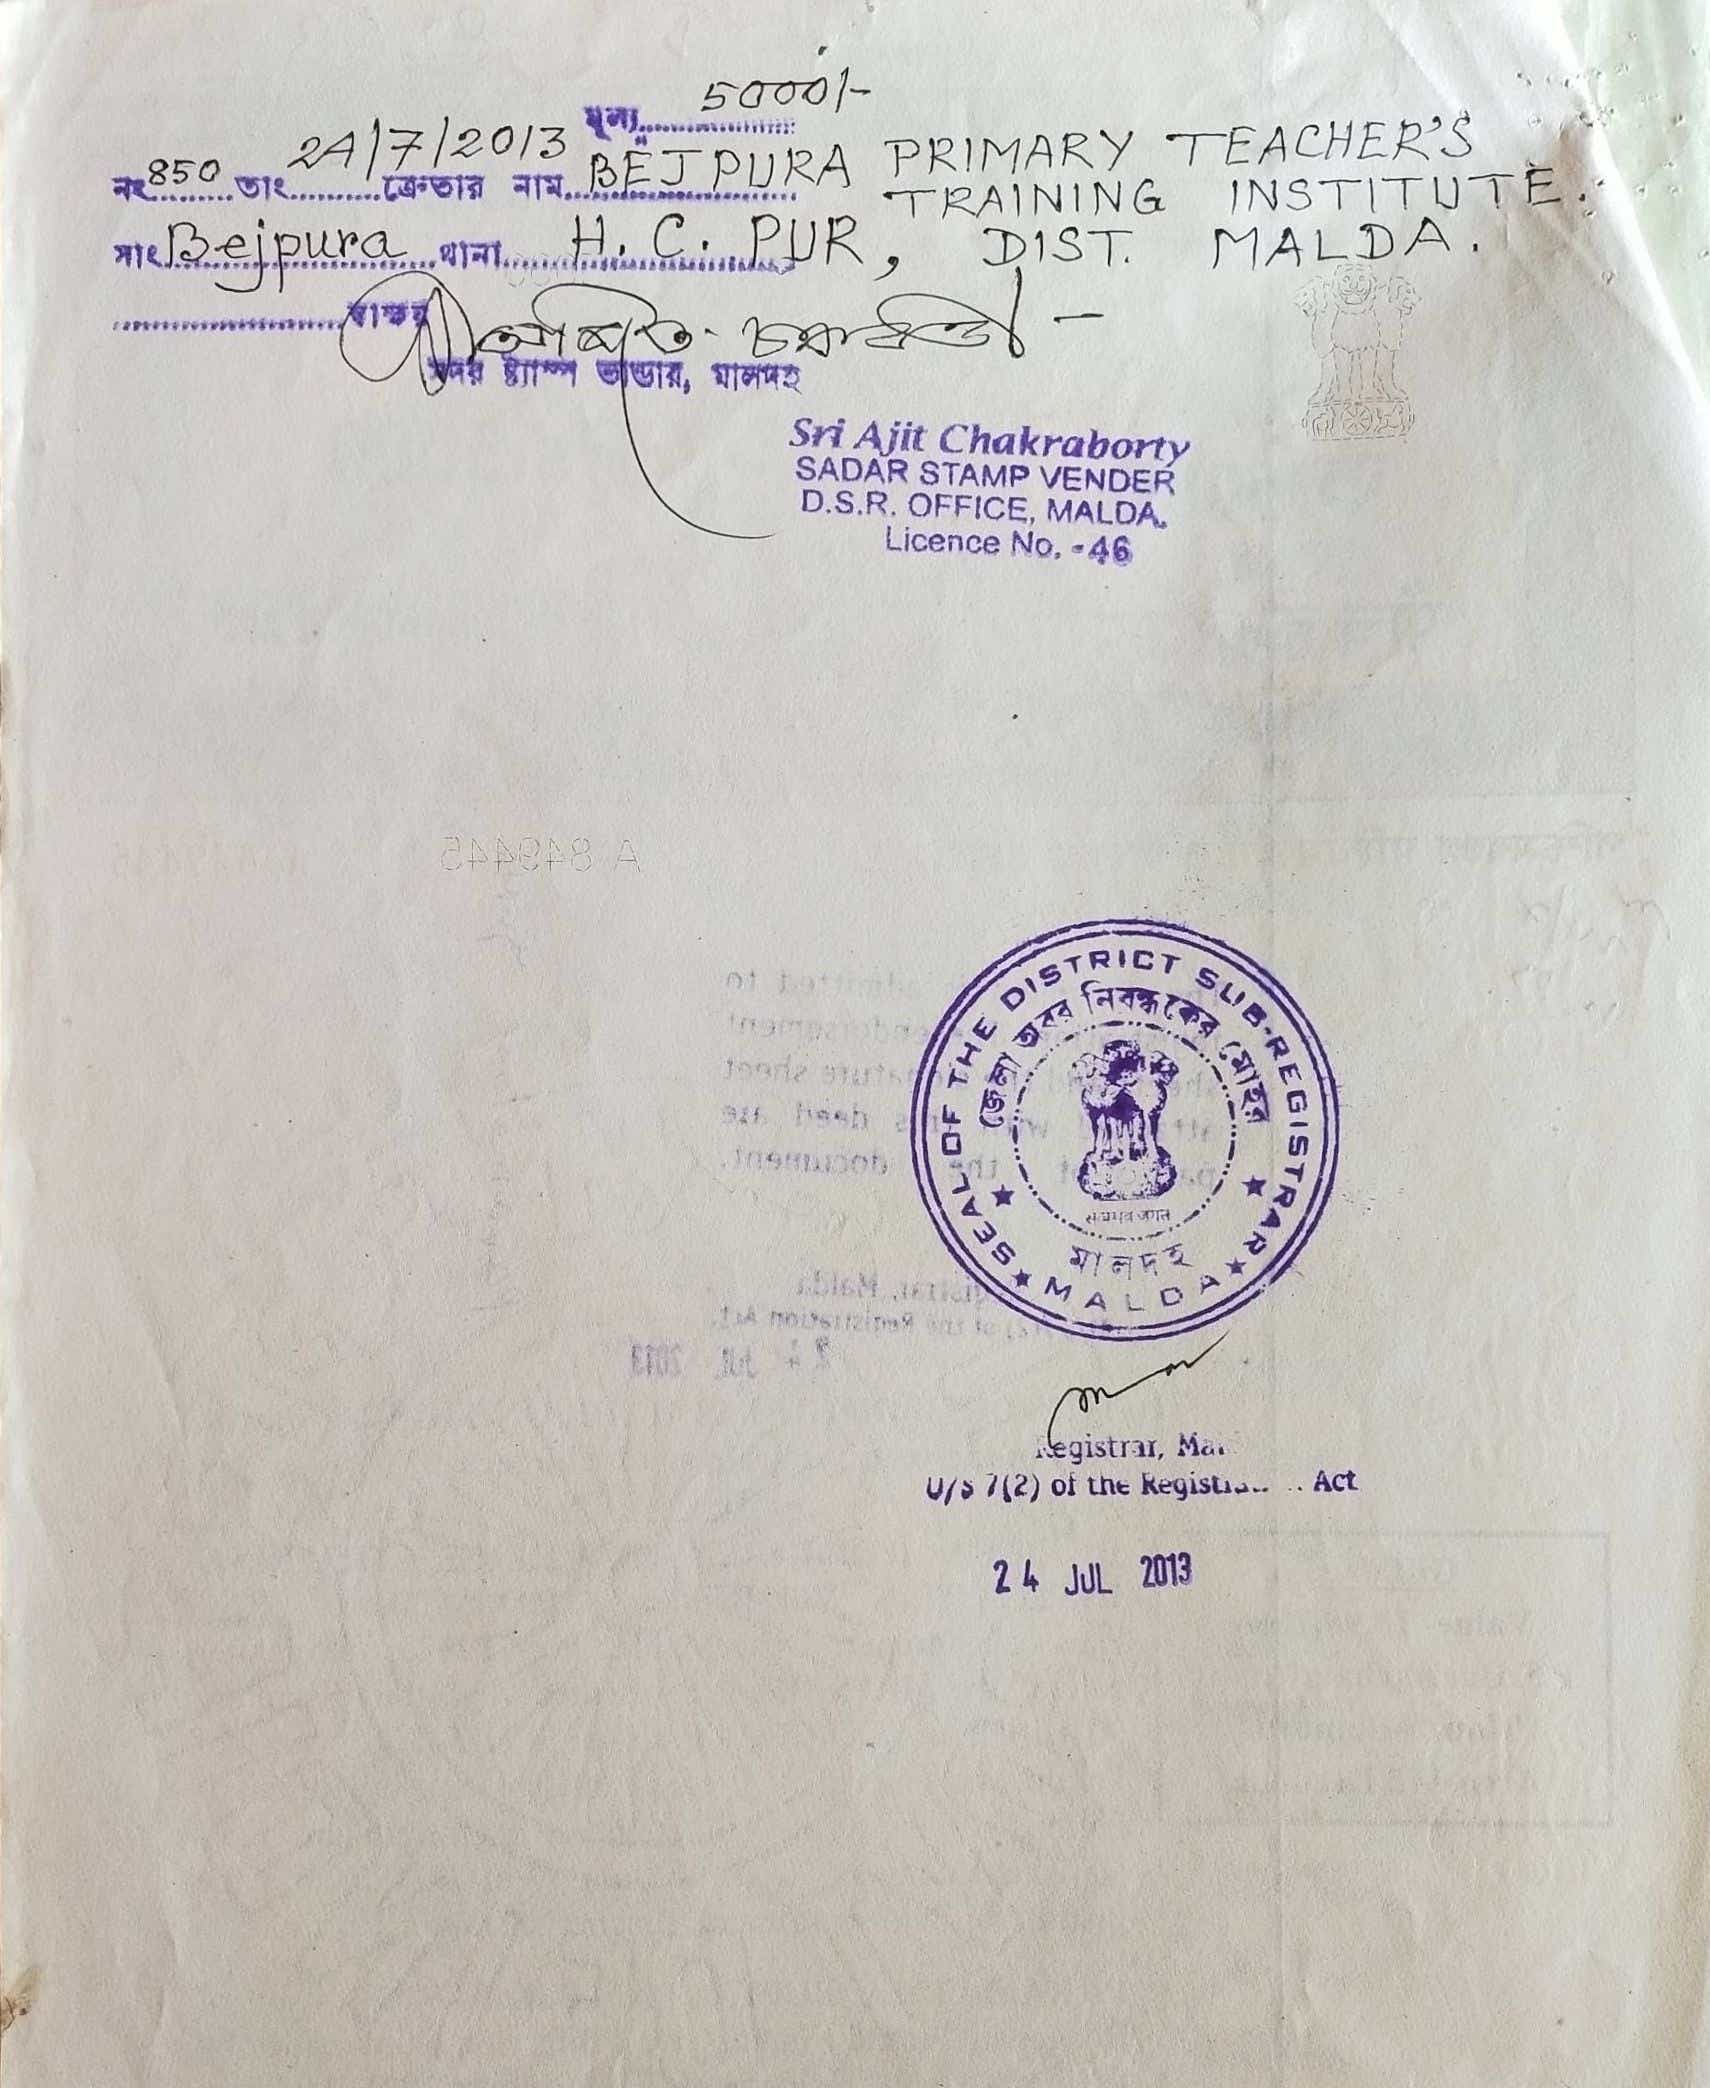 মূল্য 5000/-
নং 850 তাং 24/7/2013 ক্রেতার নাম BEJPURA PRIMARY TEACHER'S
TRAINING INSTITUTE.
সাং Bejpura থানা H. C. PUR, DIST. MALDA.
স্বাক্ষর
সদর ষ্ট্যাম্প ভান্ডার, মালদহ
Sri Ajit Chakraborty
SADAR STAMP VENDER
D.S.R. OFFICE, MALDA.
Licence No. - 46
A 849445
SEAL OF THE DISTRICT SUB-REGISTRAR
জেলা অবর নিবন্ধকের মোহর
মালদহ
MALDA
Registrar,
U/S 7(2) of the Act
24 JUL 2013